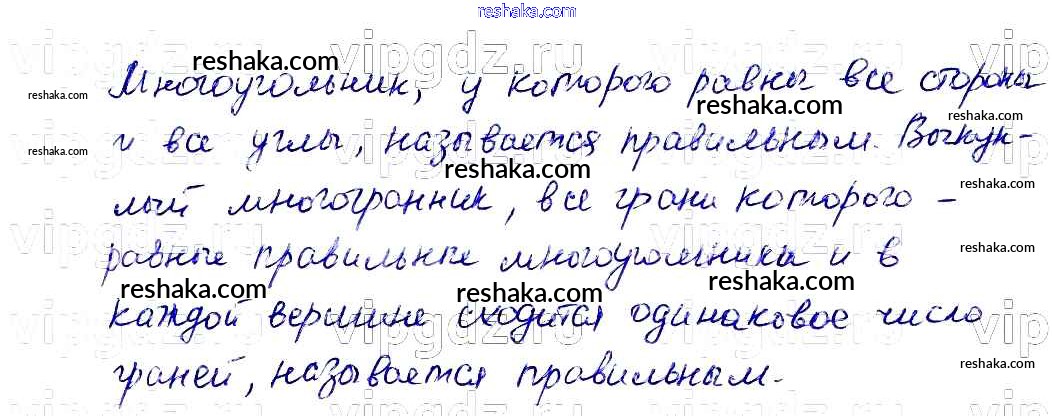 reshaka.com
vipgdz.ru vipgdz.ru vipgdz.ru
reshaka.com reshaka.com
Многоугольник, у которого равны все стороны
reshaka.com reshaka.com reshaka.com
и все углы, называется правильным. Выпук-
reshaka.com reshaka.com reshaka.com
лый многогранник, все грани которого -
vipgdz.ru vipgdz.ru vipgdz.ru
равные правильные многоугольники и в
reshaka.com reshaka.com reshaka.com reshaka.com
каждой вершине сходится одинаковое число
vipgdz.ru vipgdz.ru vipgdz.ru
граней, называется правильным.
reshaka.com